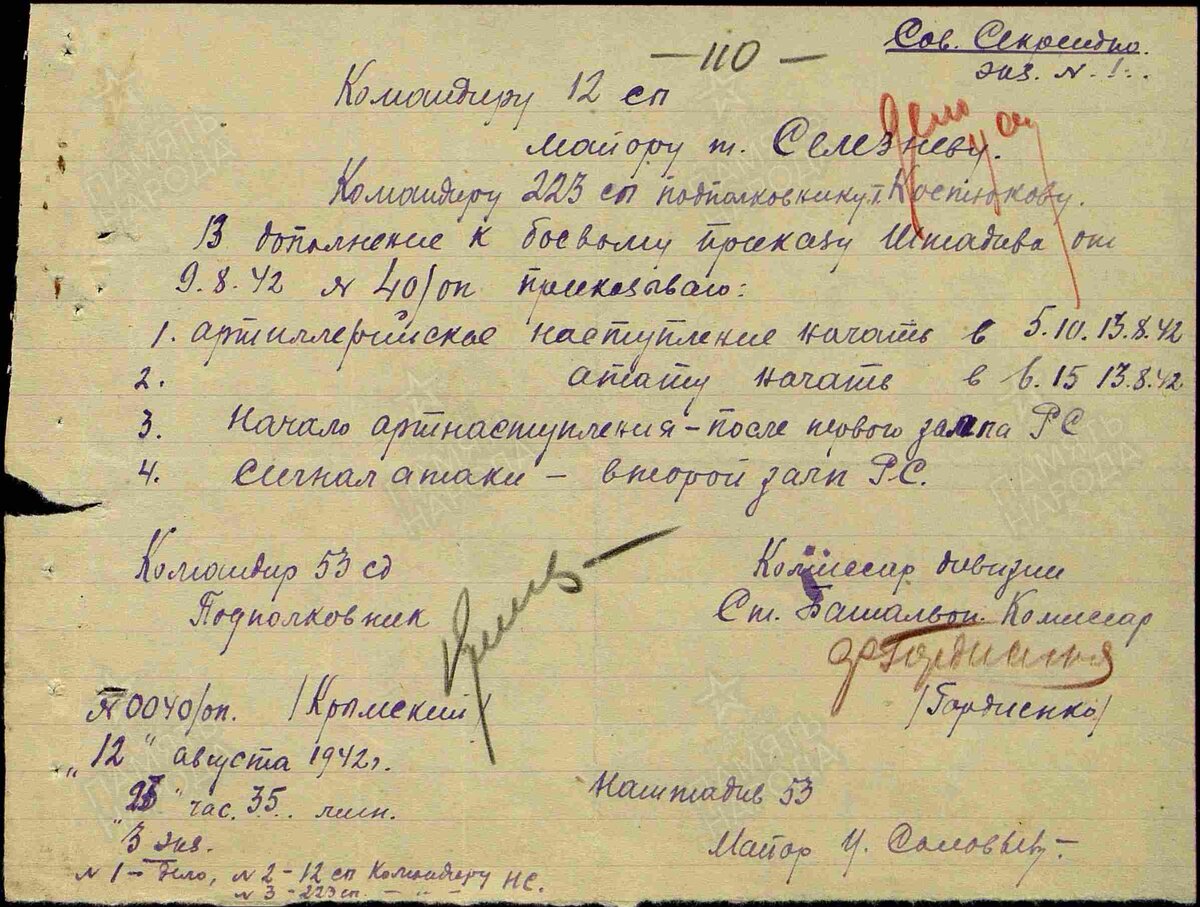 Сов. Секретно.
экз. N. 1.
— 110 —
Командиру 12 сп
майору т. Селезневу.
Командиру 223 сп подполковнику т. Костюкову.
В дополнение к боевому приказу Штадива от
9.8.42 N 40/оп приказываю:
1. артиллерийское наступление начать в 5.10. 13.8.42
2. атаку начать в 6.15 13.8.42
3. Начало артнаступления – после первого залпа РС
4. Сигнал атаки – второй залп РС.
Командир 53 сд
Подполковник
/Крымский/
Комиссар дивизии
Ст. Батальон. Комиссар
/Гордиенко/
N 0040/оп.
"12" августа 1942 г.
час. 35. мин.
3 экз.
N 1 – Дело, N 2 – 12 сп Командиру
N 3 – 223 сп. – " –
Наштадив 53
Майор
дело
ПАМЯТЬ
НАРОДА